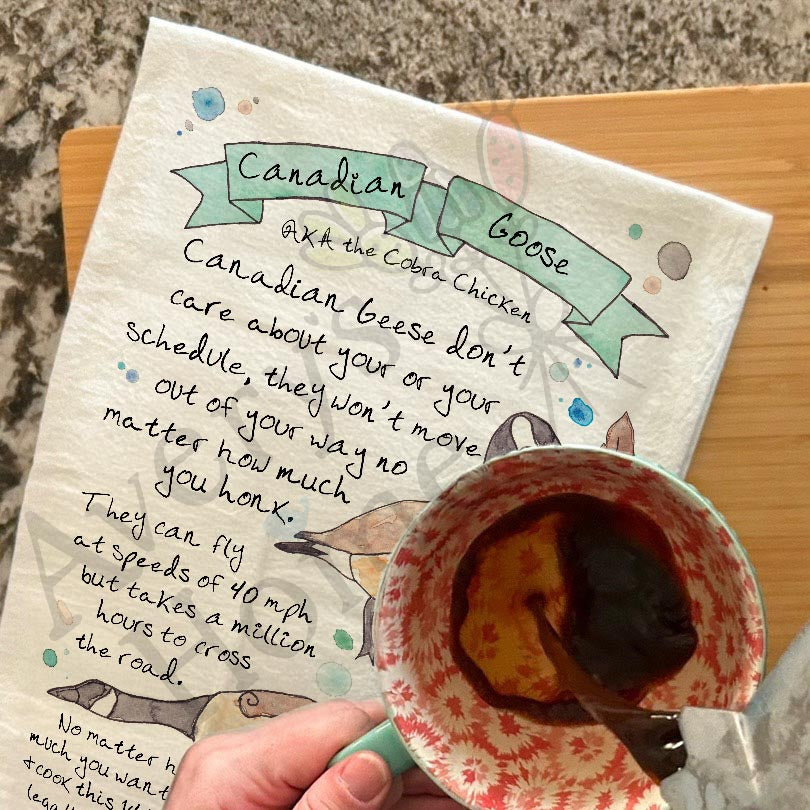 Canadian Goose
AKA the Cobra Chicken
Canadian Geese don't
care about your or your
schedule, they won't move
out of your way no
matter how much
you honk.
They can fly
at speeds of 40 mph
but takes a million
hours to cross
the road.
No matter h
much you want
+ cook this
Avery's
Home